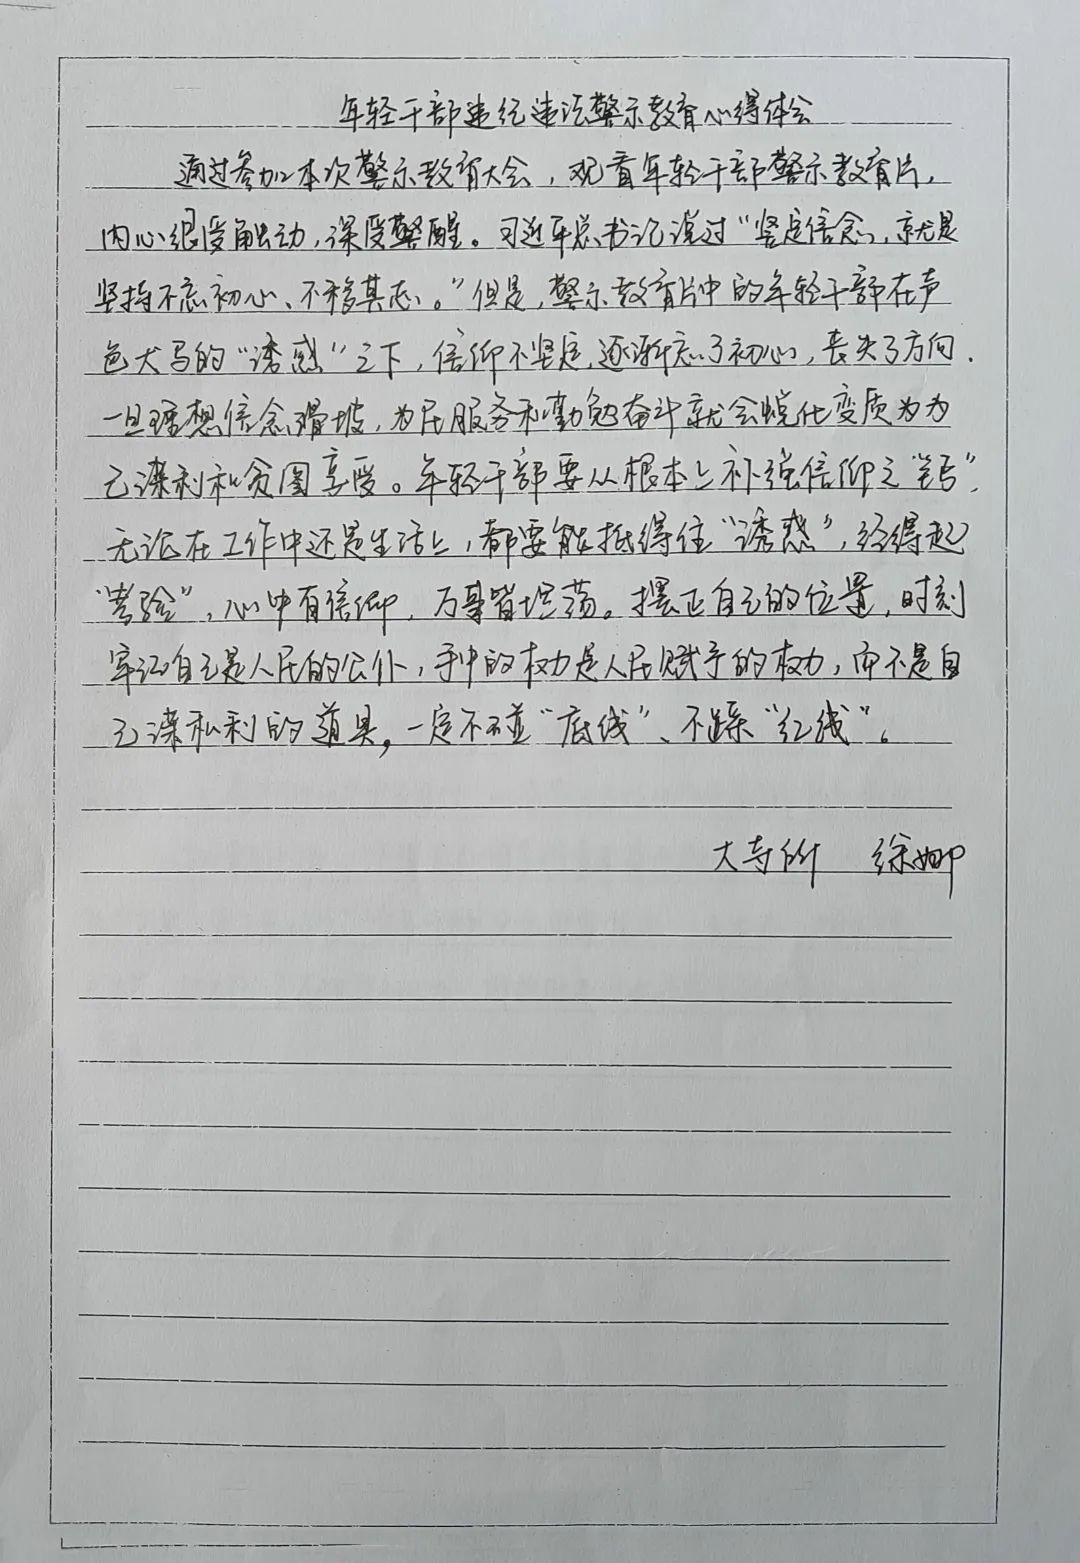 年轻干部违纪违法警示教育心得体会
通过参加本次警示教育大会，观看年轻干部警示教育片，
内心很受触动，深受警醒。习近平总书记说过“坚定信念，就是
坚持不忘初心、不移其志。”但是，警示教育片中的年轻干部在声
色犬马的“诱惑”之下，信仰不坚定，逐渐忘了初心，丧失了方向．
一旦理想信念滑坡，为民服务和勤勉奋斗就会蜕化变质为为
己谋利和贪图享受。年轻干部要从根本上补强信仰之“钙”，
无论在工作中还是生活上，都要能抵得住“诱惑”，经得起
“考验”，心中有信仰，万事皆坦荡。摆正自己的位置，时刻
牢记自己是人民的公仆，手中的权力是人民赋予的权力，而不是自
己谋私利的道具，一定不碰“底线”、不踩“红线”。
大寺所 徐娜